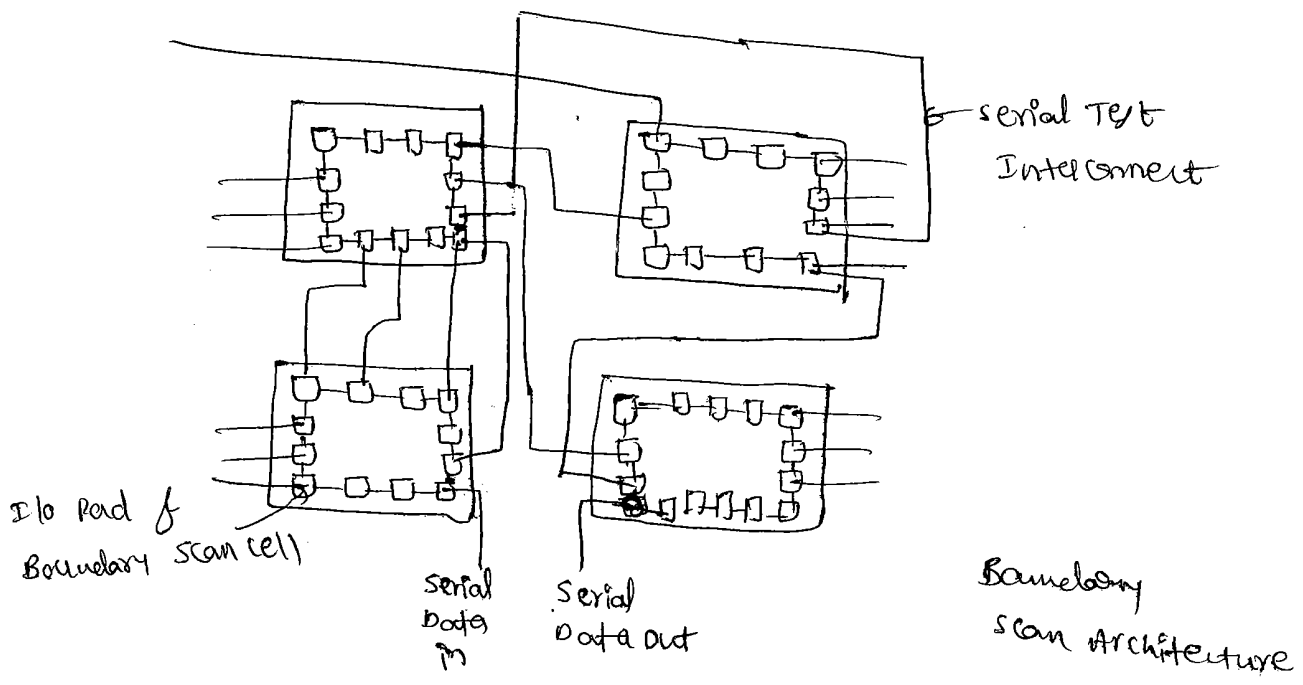 Serial Test
Interconnect
I/o Pad &
Boundary Scan Cell
Serial
Data
in
Serial
Data Out
Boundary
Scan Architecture